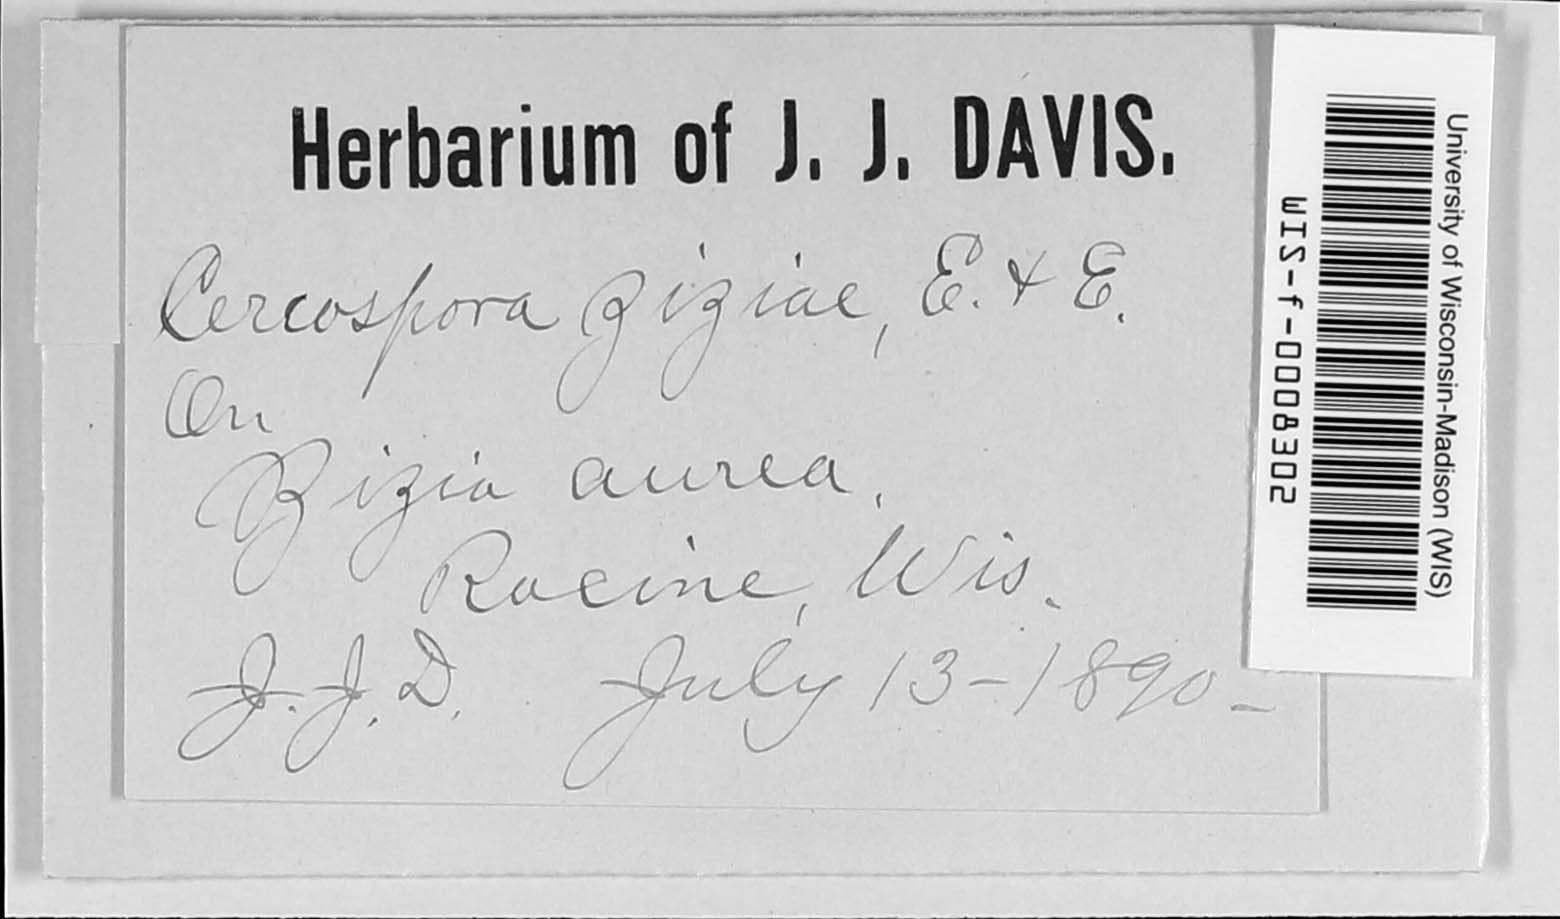 Herbarium of J. J. DAVIS.
Cercospora ziziae, E. & E.
On
Zizia aurea,
Racine, Wis.
J. J. D. July 13-1890-
University of Wisconsin-Madison (WIS)
WIS-f-0008302